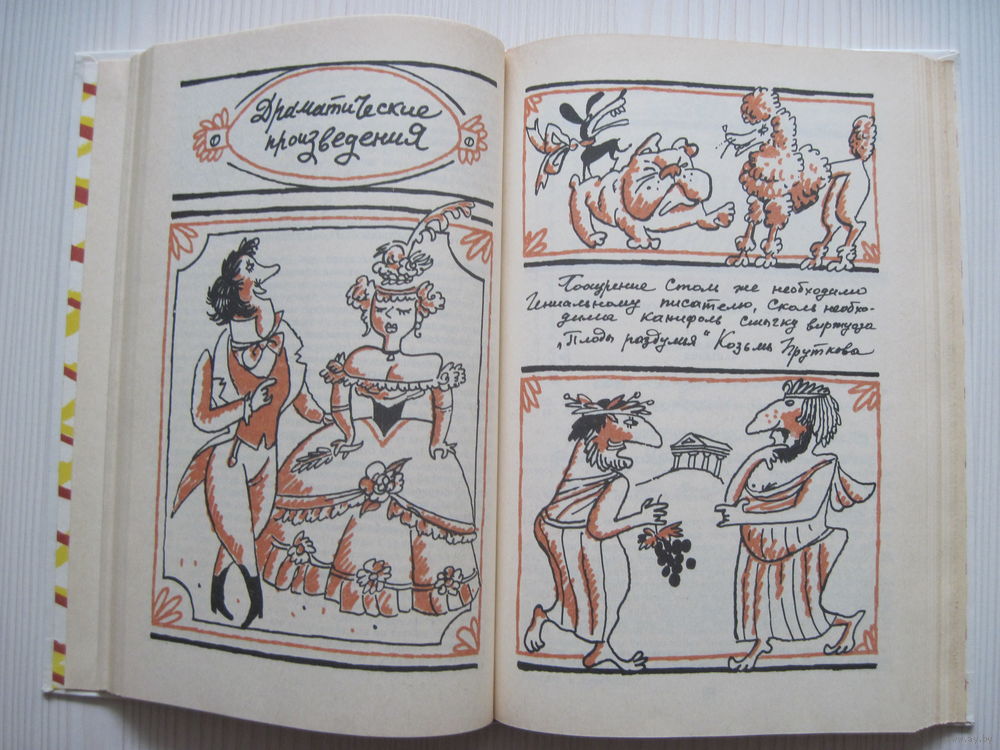 Драматические
произведения
Поощрение столь же необходимо
гениальному писателю, сколь необхо-
дима канифоль смычку виртуоза
„Плоды раздумия" Козьмы Пруткова